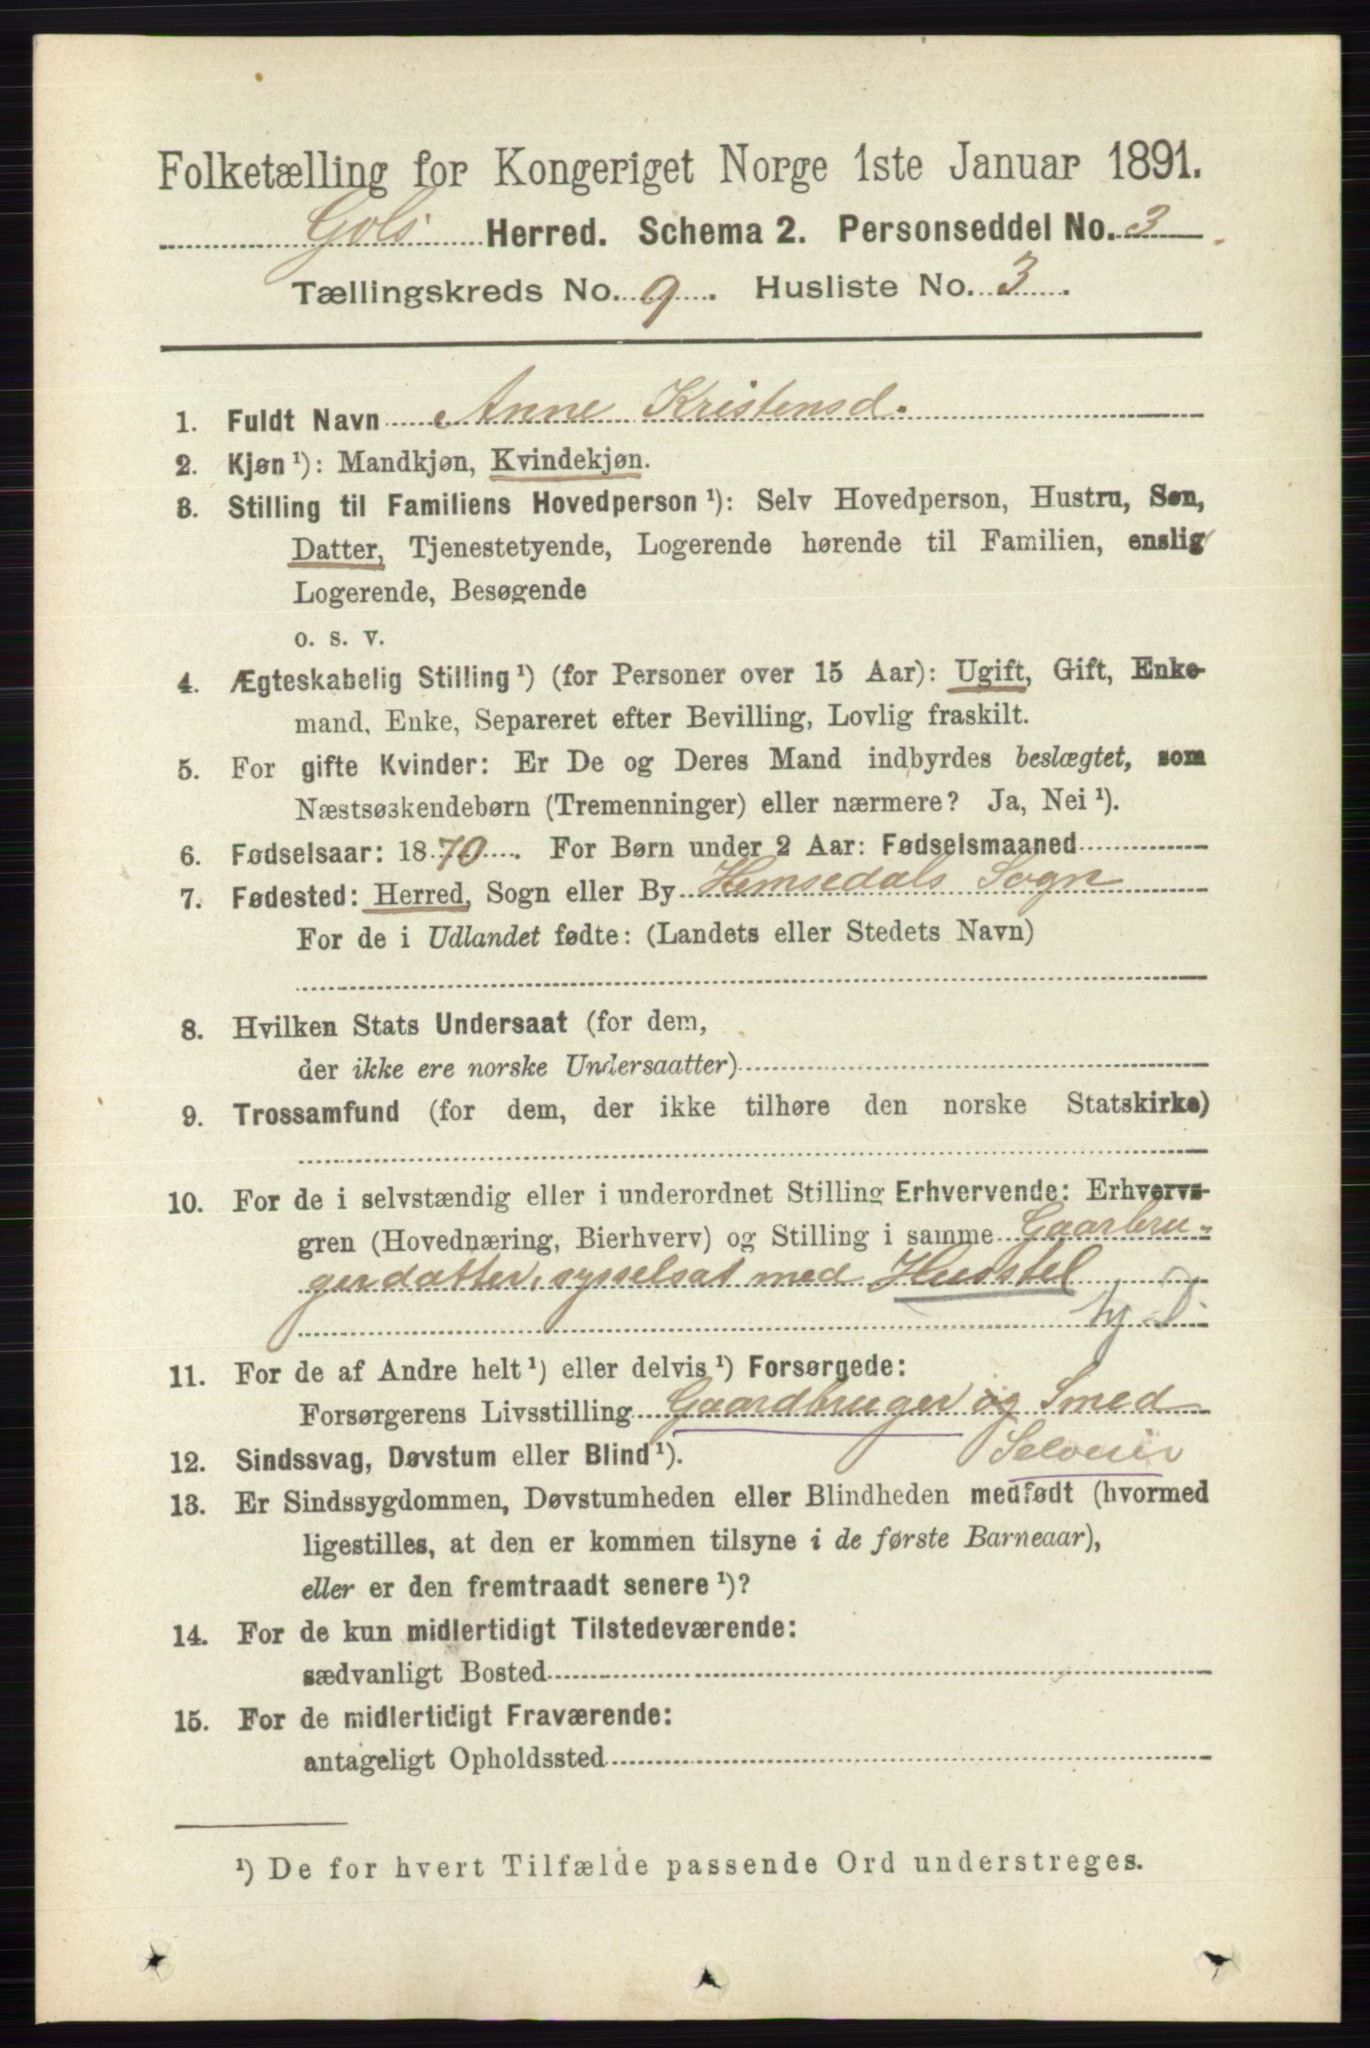 Folketælling for Kongeriget Norge 1ste Januar 1891.
Gols Herred. Schema 2. Personseddel No. 3
Tællingskreds No. 9. Husliste No. 3.
1. Fuldt Navn Anne Kristensd.
2. Kjøn ¹): Mandkjøn, Kvindekjøn.
3. Stilling til Familiens Hovedperson ¹): Selv Hovedperson, Hustru, Søn,
Datter, Tjenestetyende, Logerende hørende til Familien, enslig
Logerende, Besøgende
o. s. v.
4. Ægteskabelig Stilling ¹) (for Personer over 15 Aar): Ugift, Gift, Enke-
mand, Enke, Separeret efter Bevilling, Lovlig fraskilt.
5. For gifte Kvinder: Er De og Deres Mand indbyrdes beslægtet, som
Næstsøskendebørn (Tremenninger) eller nærmere? Ja, Nei ¹).
6. Fødselsaar: 1870. For Børn under 2 Aar: Fødselsmaaned
7. Fødested: Herred, Sogn eller By Hemsedals Sogn
For de i Udlandet fødte: (Landets eller Stedets Navn)
8. Hvilken Stats Undersaat (for dem,
der ikke ere norske Undersaatter)
9. Trossamfund (for dem, der ikke tilhøre den norske Statskirke)
10. For de i selvstændig eller i underordnet Stilling Erhvervende: Erhvervs-
gren (Hovednæring, Bierhverv) og Stilling i samme Gaarbru-
gerdatter, sysselsat med Husstel
hj D.
11. For de af Andre helt ¹) eller delvis ¹) Forsørgede:
Forsørgerens Livsstilling Gaardbruger og Smed
12. Sindssvag, Døvstum eller Blind ¹). Seloeier
13. Er Sindssygdommen, Døvstumheden eller Blindheden medfødt (hvormed
ligestilles, at den er kommen tilsyne i de første Barneaar),
eller er den fremtraadt senere ¹)?
14. For de kun midlertidigt Tilstedeværende:
sædvanligt Bosted
15. For de midlertidigt Fraværende:
antageligt Opholdssted
¹) De for hvert Tilfælde passende Ord understreges.